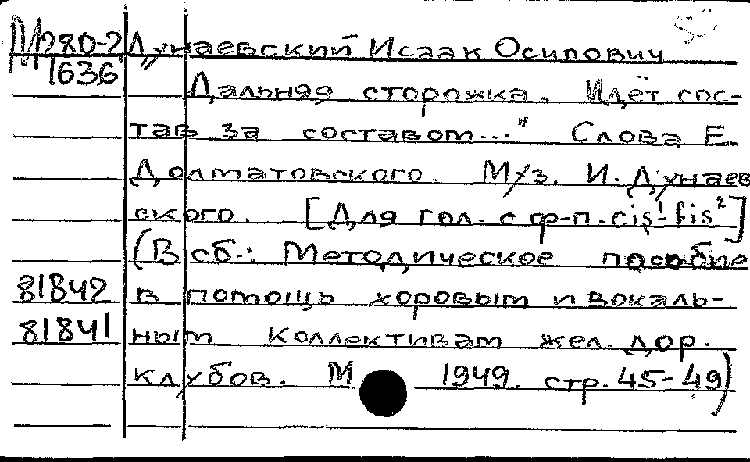 М280-2 Дунаевский Исаак Осипович
1636 Дальняя сторожка. Идёт сос-
тав за составом..." Слова Е.
Долматовского. Муз. И. Дунаев
ского. [Для гол. с ф-п. cis¹-fis²]
(В сб.: Методическое пособие
81842 в помощь хоровым и вокаль-
81841 ным коллективам жел. дор.
клубов. М 1949. стр. 45-49)